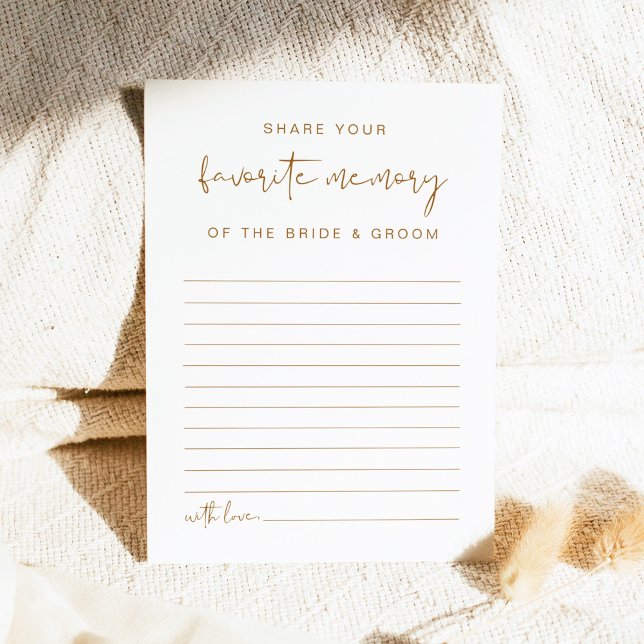 SHARE YOUR
favorite memory
OF THE BRIDE & GROOM
with love,